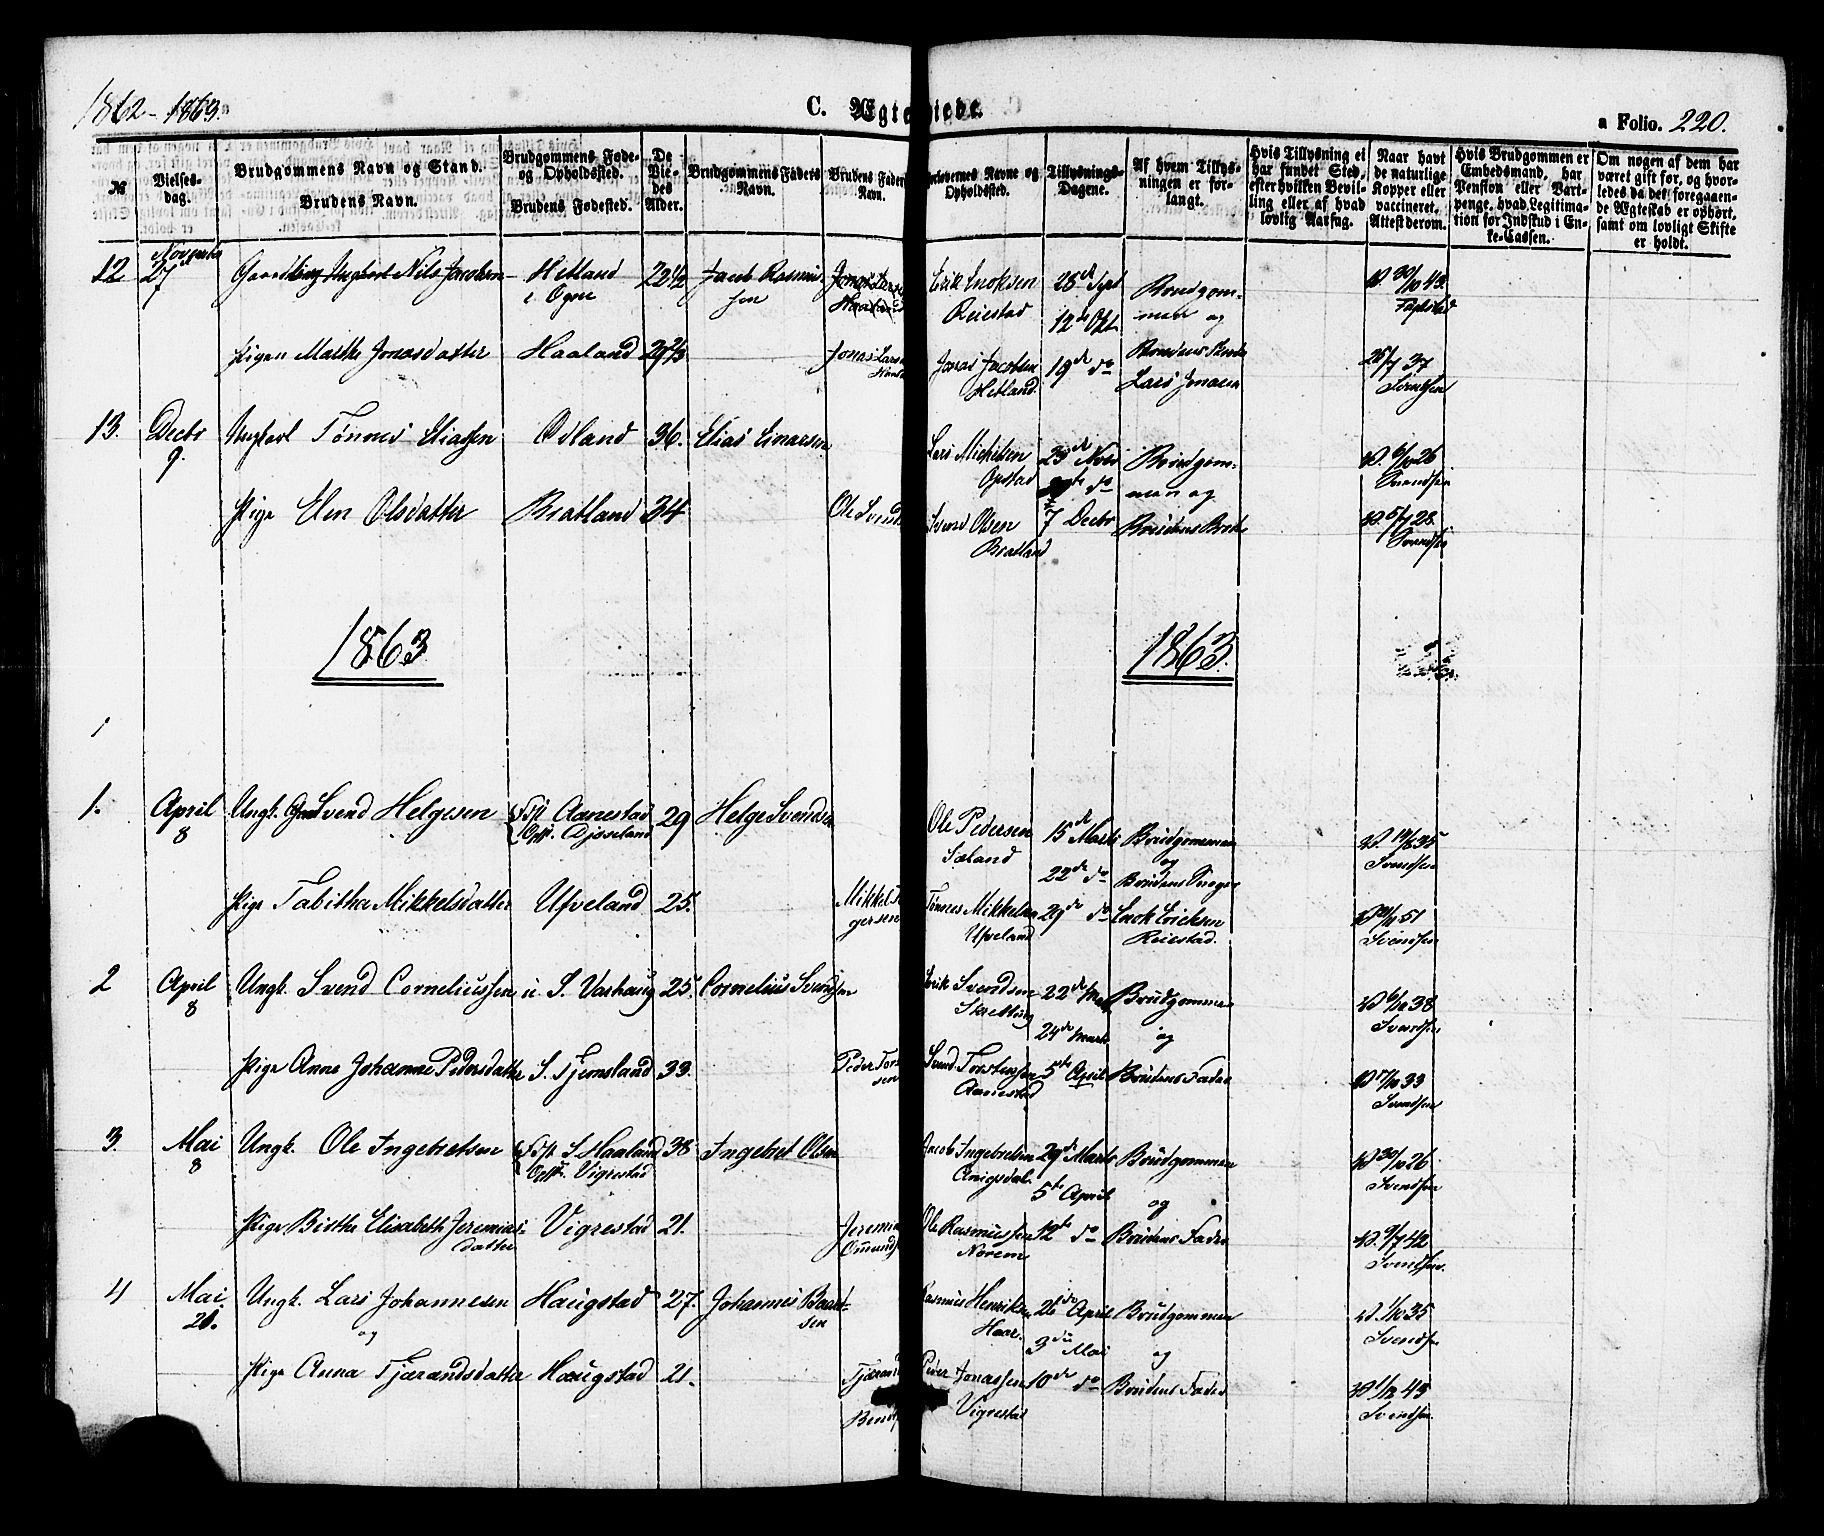 1862-1863.
C. Ægteviede.
a Folio. 220.
№
Vielses-
dag.
Brudgommens Navn og Stand.
Brudens Navn.
Brudgommens Føde-
og Opholdssted.
Brudens Fødested.
De
Vie-
des
Alder.
Brudgommens Faders
Navn.
Brudens Faders
Navn.
Forlovernes Navne og
Opholdssted.
Tillysnings-
Dagene.
Af hvem Tillys-
ningen er for-
langt.
Hvis Tillysning ei
har fundet Sted,
efter hvilken Bevil-
ling eller af hvad
lovlig Aarsag.
Naar havt
de naturlige
Kopper eller
vaccineret.
Attest derom.
Hvis Brudgommen er
Embedsmand, har
Pension eller Vart-
penge, hvad Legitima-
tion for Indskud i En-
ke-Cassen.
Om nogen af dem har
været gift før, og hvor-
ledes da det foregaaen-
de Ægteskab er ophørt,
samt om lovligt Skifte
er holdt.
12
27
Nils Jacobsen
Hetland
i Ogne
22½
Jacob Rasmus-
sen
Erik Enoksen
Reiestad
28de Sept
12te Okt
Brudgom-
men og
30/10 42
Pigen Malthe Jonasdatter
Haaland
Jonas Lars
Jonas Jacobsen
Hetland
19de do
Lars Jonasen
37
Svendsen
13.
Decbr
9.
Ungkarl Tønnes Eliassen
Odland
36.
Elias Einarsen
Lars Michelsen
Opstad
23de Novb
do
Brudgom-
men og
6/10 26
Svendsen
Pige Elen Olsdatter
Bratland
34
Ole Svends
Svend Olsen
Bratland
7 Decbr
Brudens Broder
5/7 28
Svendsen
1863
1863.
1.
April
8
Ungk. Svend Helgesen
Føst Aanestad
Opst. Djøseland
29
Helge Svendsen
Ole Pedersen
Sæland
15de Marts
22de do
Brudgommen
og
35
Svendsen
Pige Tabitha Mikkelsdatter
Ufveland
25.
Mikkel
gersen
Tønnes Mikkelsen
Ufveland
29de do
Enok Ericksen
Reiestad.
51
Svendsen
2
April
8
Ungk. Svend Corneliussen
S. Varhaug
25.
Cornelius Svendsen
Erik Svendsen
Skretting
22de
24de Marts
Brudgommen
og
38
Svendsen
Pige Anne Johanne Pedersdatter
S. Tjemsland
33.
Peder Tors
sen
Svend Torstensen
Aanestad
5te April
Brudens Fader
33
Svendsen
3.
Mai
8
Ungk. Ole Ingebretsen
Føst S Haaland
Opst. Vigrestad
38
Ingebret Olsen
Jacob Ingebretsen
29de Marts
5te April
Brudgommen
og
30/10 26
Svendsen
Pige Birthe Elisabeth Jeremias-
datter
Vigrestad
21.
Jeremia
Omunds
Ole Rasmussen
Norem
12te do
Brudens Fader
42
Svendsen.
4
Mai
Ungk. Lars Johannesen
og
Haugstad
27.
Johannes Baard-
sen
Rasmus Henriksen
Haar.
26de April
3die Mai
Brudgommen
og
1/10 35
Svendsen
Pige Anna Tjærandsdatter
Haugstad
21.
Tjærand
Peder Jonassen
Vigrestad
10de do
Brudens Fader
43
Svendsen.